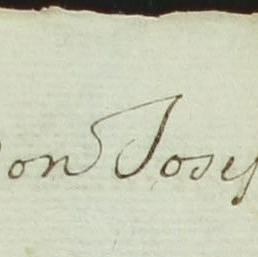 Don Josep